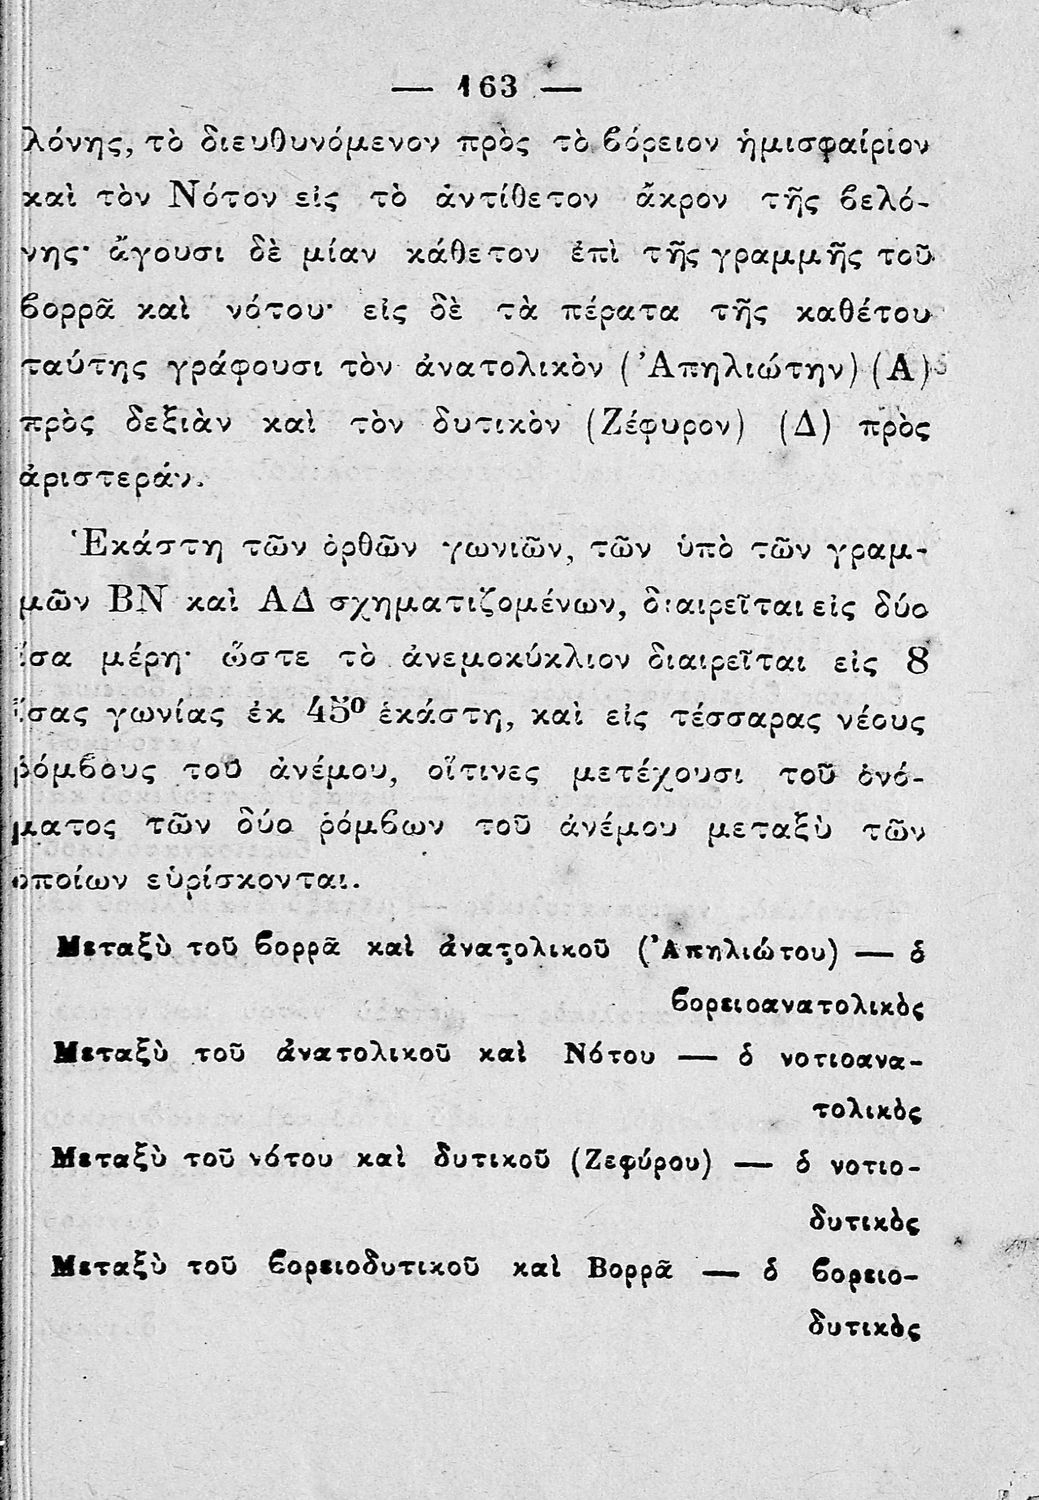 — 163 —
λόνης, τὸ διευθυνόμενον πρὸς τὸ βόρειον ἡμισφαίριον
καὶ τὸν Νότον εἰς τὸ ἀντίθετον ἄκρον τῆς βελό-
νης· ἄγουσι δὲ μίαν κάθετον ἐπὶ τῆς γραμμῆς τοῦ
βορρᾶ καὶ νότου· εἰς δὲ τὰ πέρατα τῆς καθέτου
ταύτης γράφουσι τὸν ἀνατολικὸν (Ἀπηλιώτην) (Α)
πρὸς δεξιὰν καὶ τὸν δυτικὸν (Ζέφυρον) (Δ) πρὸς
ἀριστεράν.
Ἑκάστη τῶν ὀρθῶν γωνιῶν, τῶν ὑπὸ τῶν γραμ-
μῶν ΒΝ καὶ ΑΔ σχηματιζομένων, διαιρεῖται εἰς δύο
ἴσα μέρη· ὥστε τὸ ἀνεμοκύκλιον διαιρεῖται εἰς 8
ἴσας γωνίας ἐκ 45⁰ ἑκάστη, καὶ εἰς τέσσαρας νέους
ῥόμβους τοῦ ἀνέμου, οἵτινες μετέχουσι τοῦ ὀνό-
ματος τῶν δύο ῥόμβων τοῦ ἀνέμου μεταξὺ τῶν
ὁποίων εὑρίσκονται.
Μεταξὺ τοῦ βορρᾶ καὶ ἀνατολικοῦ (Ἀπηλιώτου) — ὁ
βορειοανατολικὸς
Μεταξὺ τοῦ ἀνατολικοῦ καὶ Νότου — ὁ νοτιοανα-
τολικὸς
Μεταξὺ τοῦ νότου καὶ δυτικοῦ (Ζεφύρου) — ὁ νοτιο-
δυτικὸς
Μεταξὺ τοῦ βορειοδυτικοῦ καὶ Βορρᾶ — ὁ βορειο-
δυτικὸς